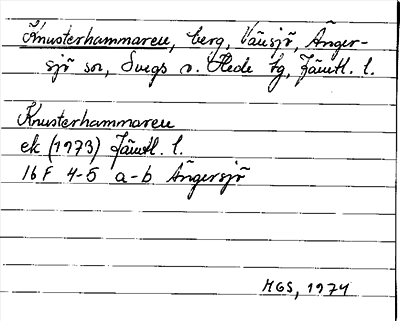 Knusterhammaren, berg, Vänsjö, Änger-
sjö sn, Svegs o. Hede tg, Jämtl. l.
Knusterhammaren
ek (1973) Jämtl. l.
16F 4-5 a-b Ängersjö
MGS, 1974